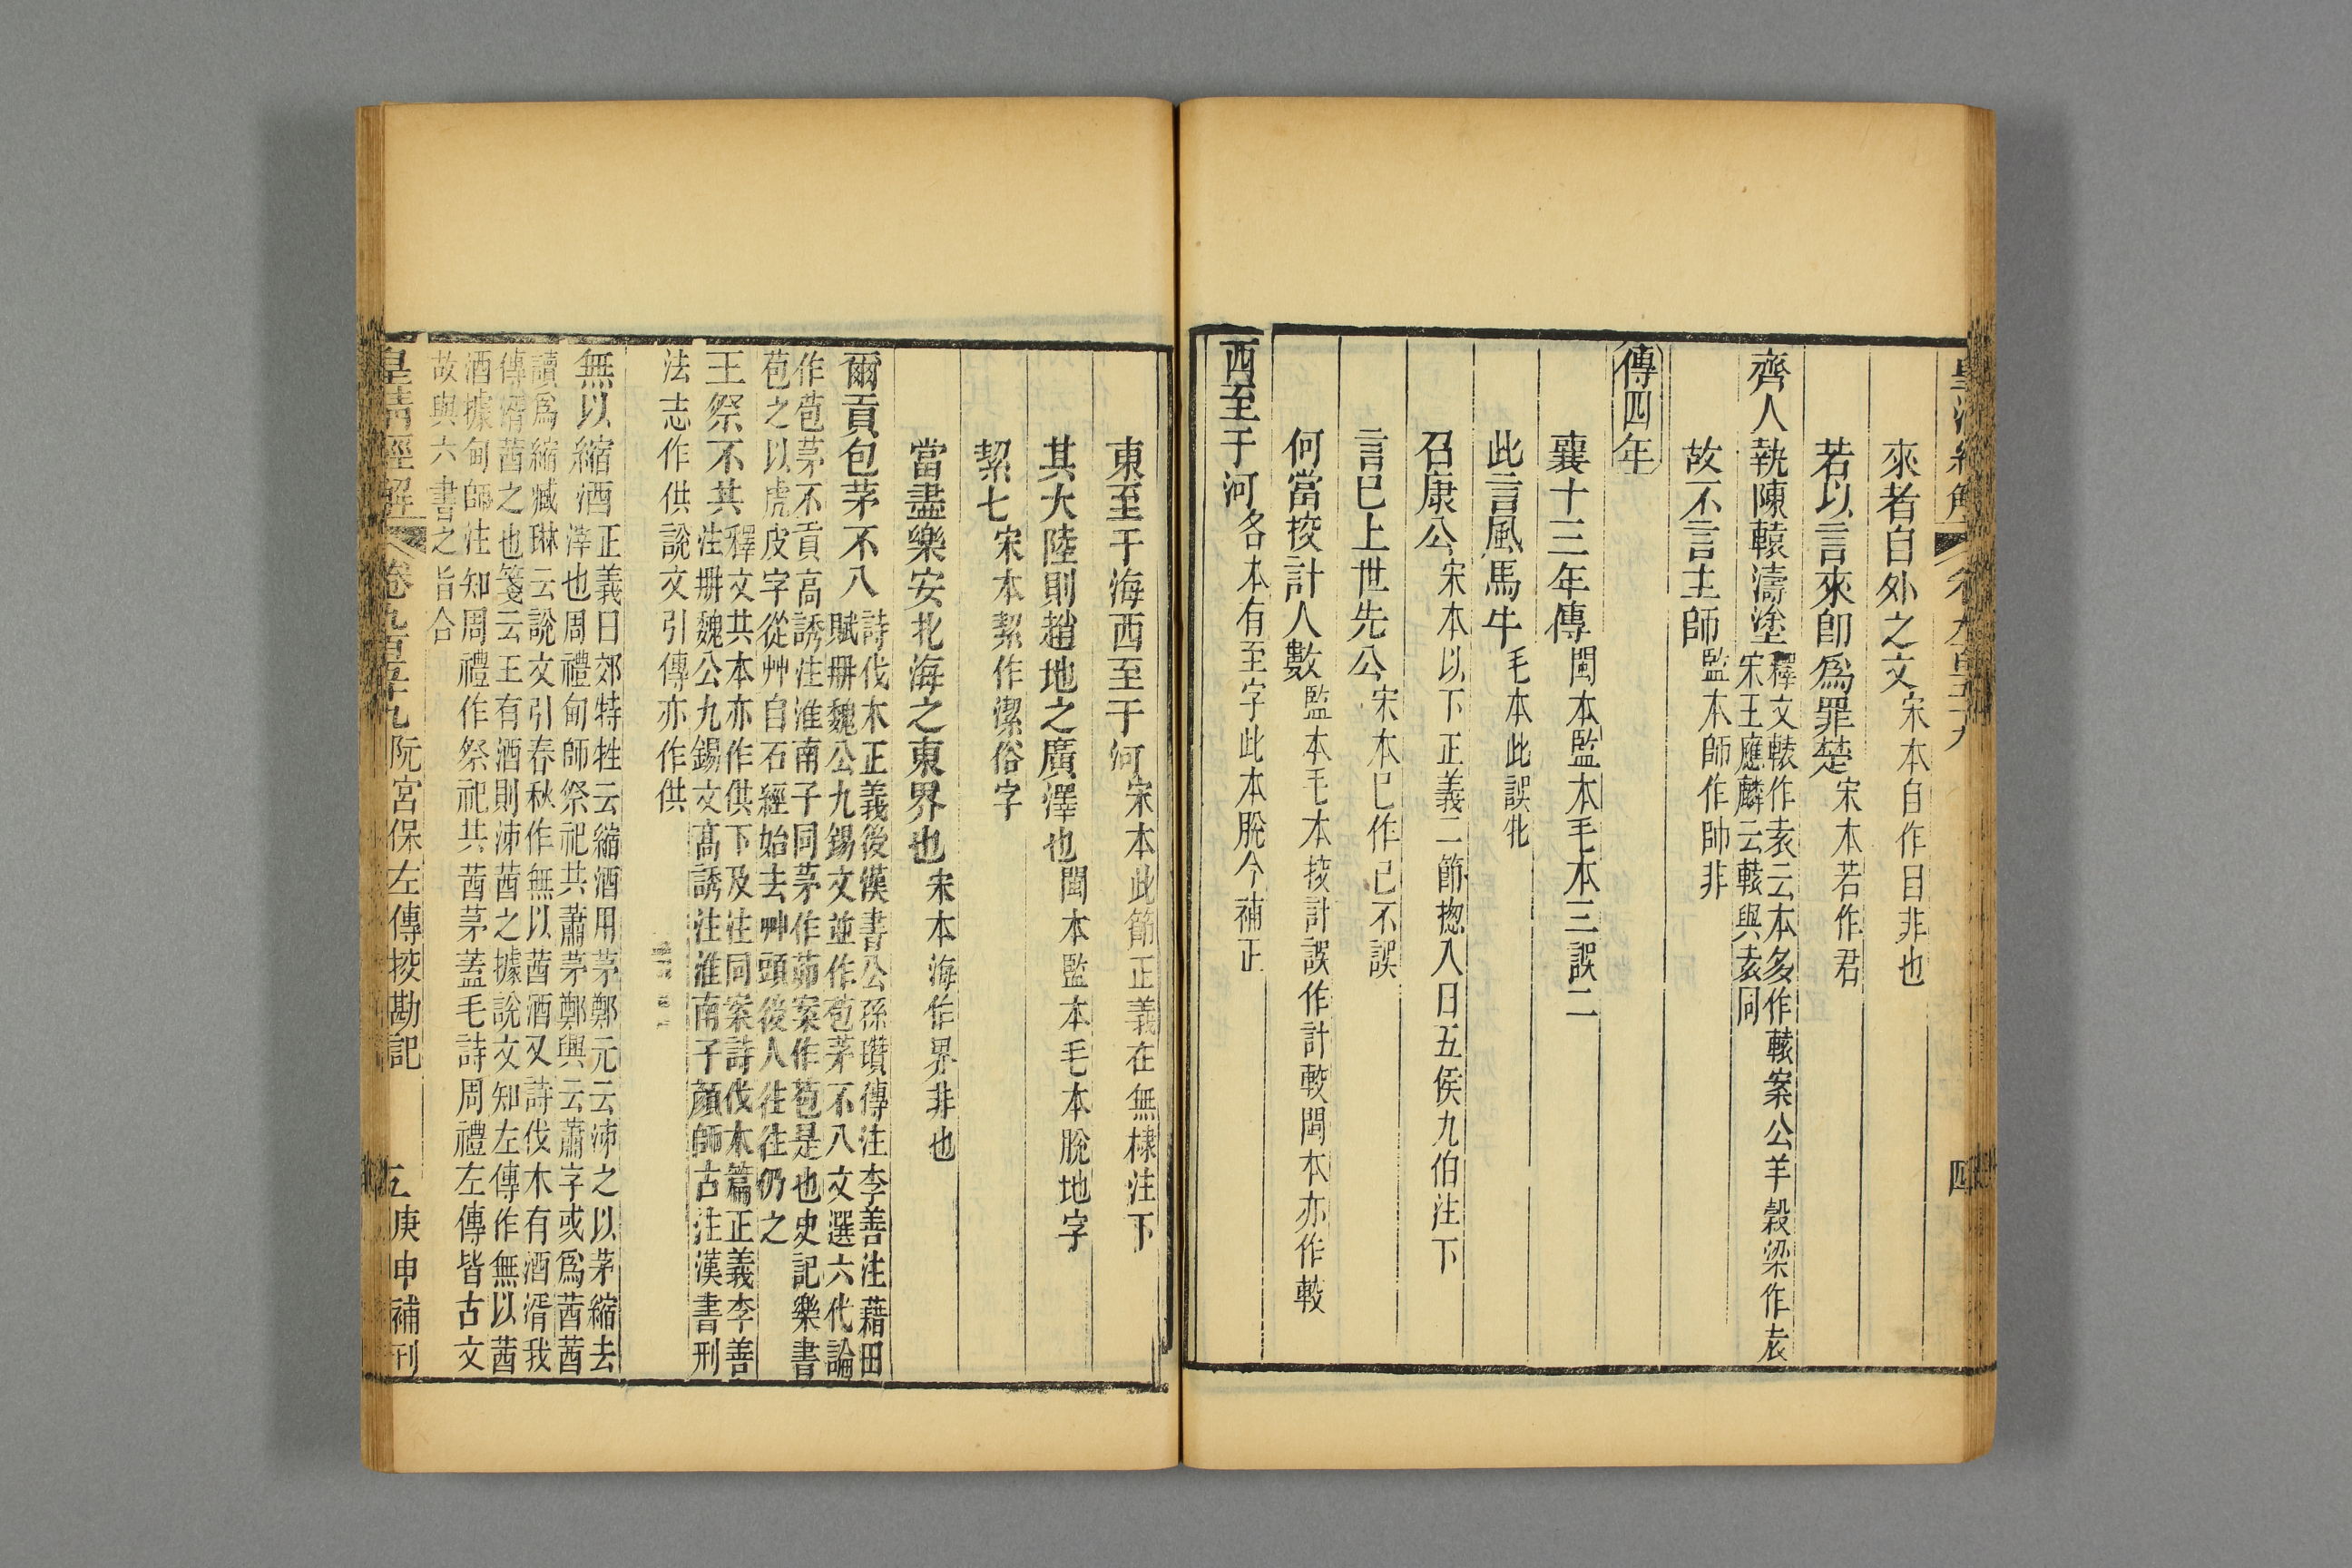 來者自外之文宋本自作目非也
若以言來卽爲罪楚宋本若作君
齊人執陳轅濤塗釋文轅作袁云本多作轅案公羊穀梁作袁
宋王應麟云轅與袁同
故不言主師監本師作帥非
傳四年
襄十三年傳閩本監本毛本三誤二
此言風馬牛毛本此誤牝
召康公宋本以下正義二節揔入曰五侯九伯注下
言巳上世先公宋本巳作己不誤
何當挍計人數監本毛本挍計誤作計較閩本亦作較
西至于河各本有至字此本脫今補正
東至于海西至于河宋本此節正義在無棣注下
其大陸則趙地之廣澤也閩本監本毛本脫地字
絜七宋本絜作潔俗字
當盡樂安北海之東界也宋本海作界非也
爾貢包茅不入詩伐木正義後漢書公孫瓚傳注李善注藉田
賦册魏公九錫文並作苞茅不入文選六代論
作苞茅不貢高誘注淮南子同茅作茆案作苞是也史記樂書
苞之以虎皮字從艸自石經始去艸頭後人往往仍之
王祭不共釋文共本亦作供下及注同案詩伐木篇正義李善
注册魏公九錫文高誘注淮南子顏師古注漢書刑
法志作供說文引傳亦作供
無以縮酒正義曰郊特牲云縮酒用茅鄭元云沛之以茅縮去
滓也周禮甸師祭祀共蕭茅鄭興云蕭字或爲莤莤
讀爲縮臧琳云說文引春秋作無以莤酒又詩伐木有酒湑我
傳湑莤之也箋云王有酒則沛莤之據說文知左傳作無以莤
酒據甸師注知周禮作祭祀共莤茅蓋毛詩周禮左傳皆古文
故與六書之旨合
皇淸經解 卷九百五十九 阮宮保左傳挍勘記 五 庚申補刊
四